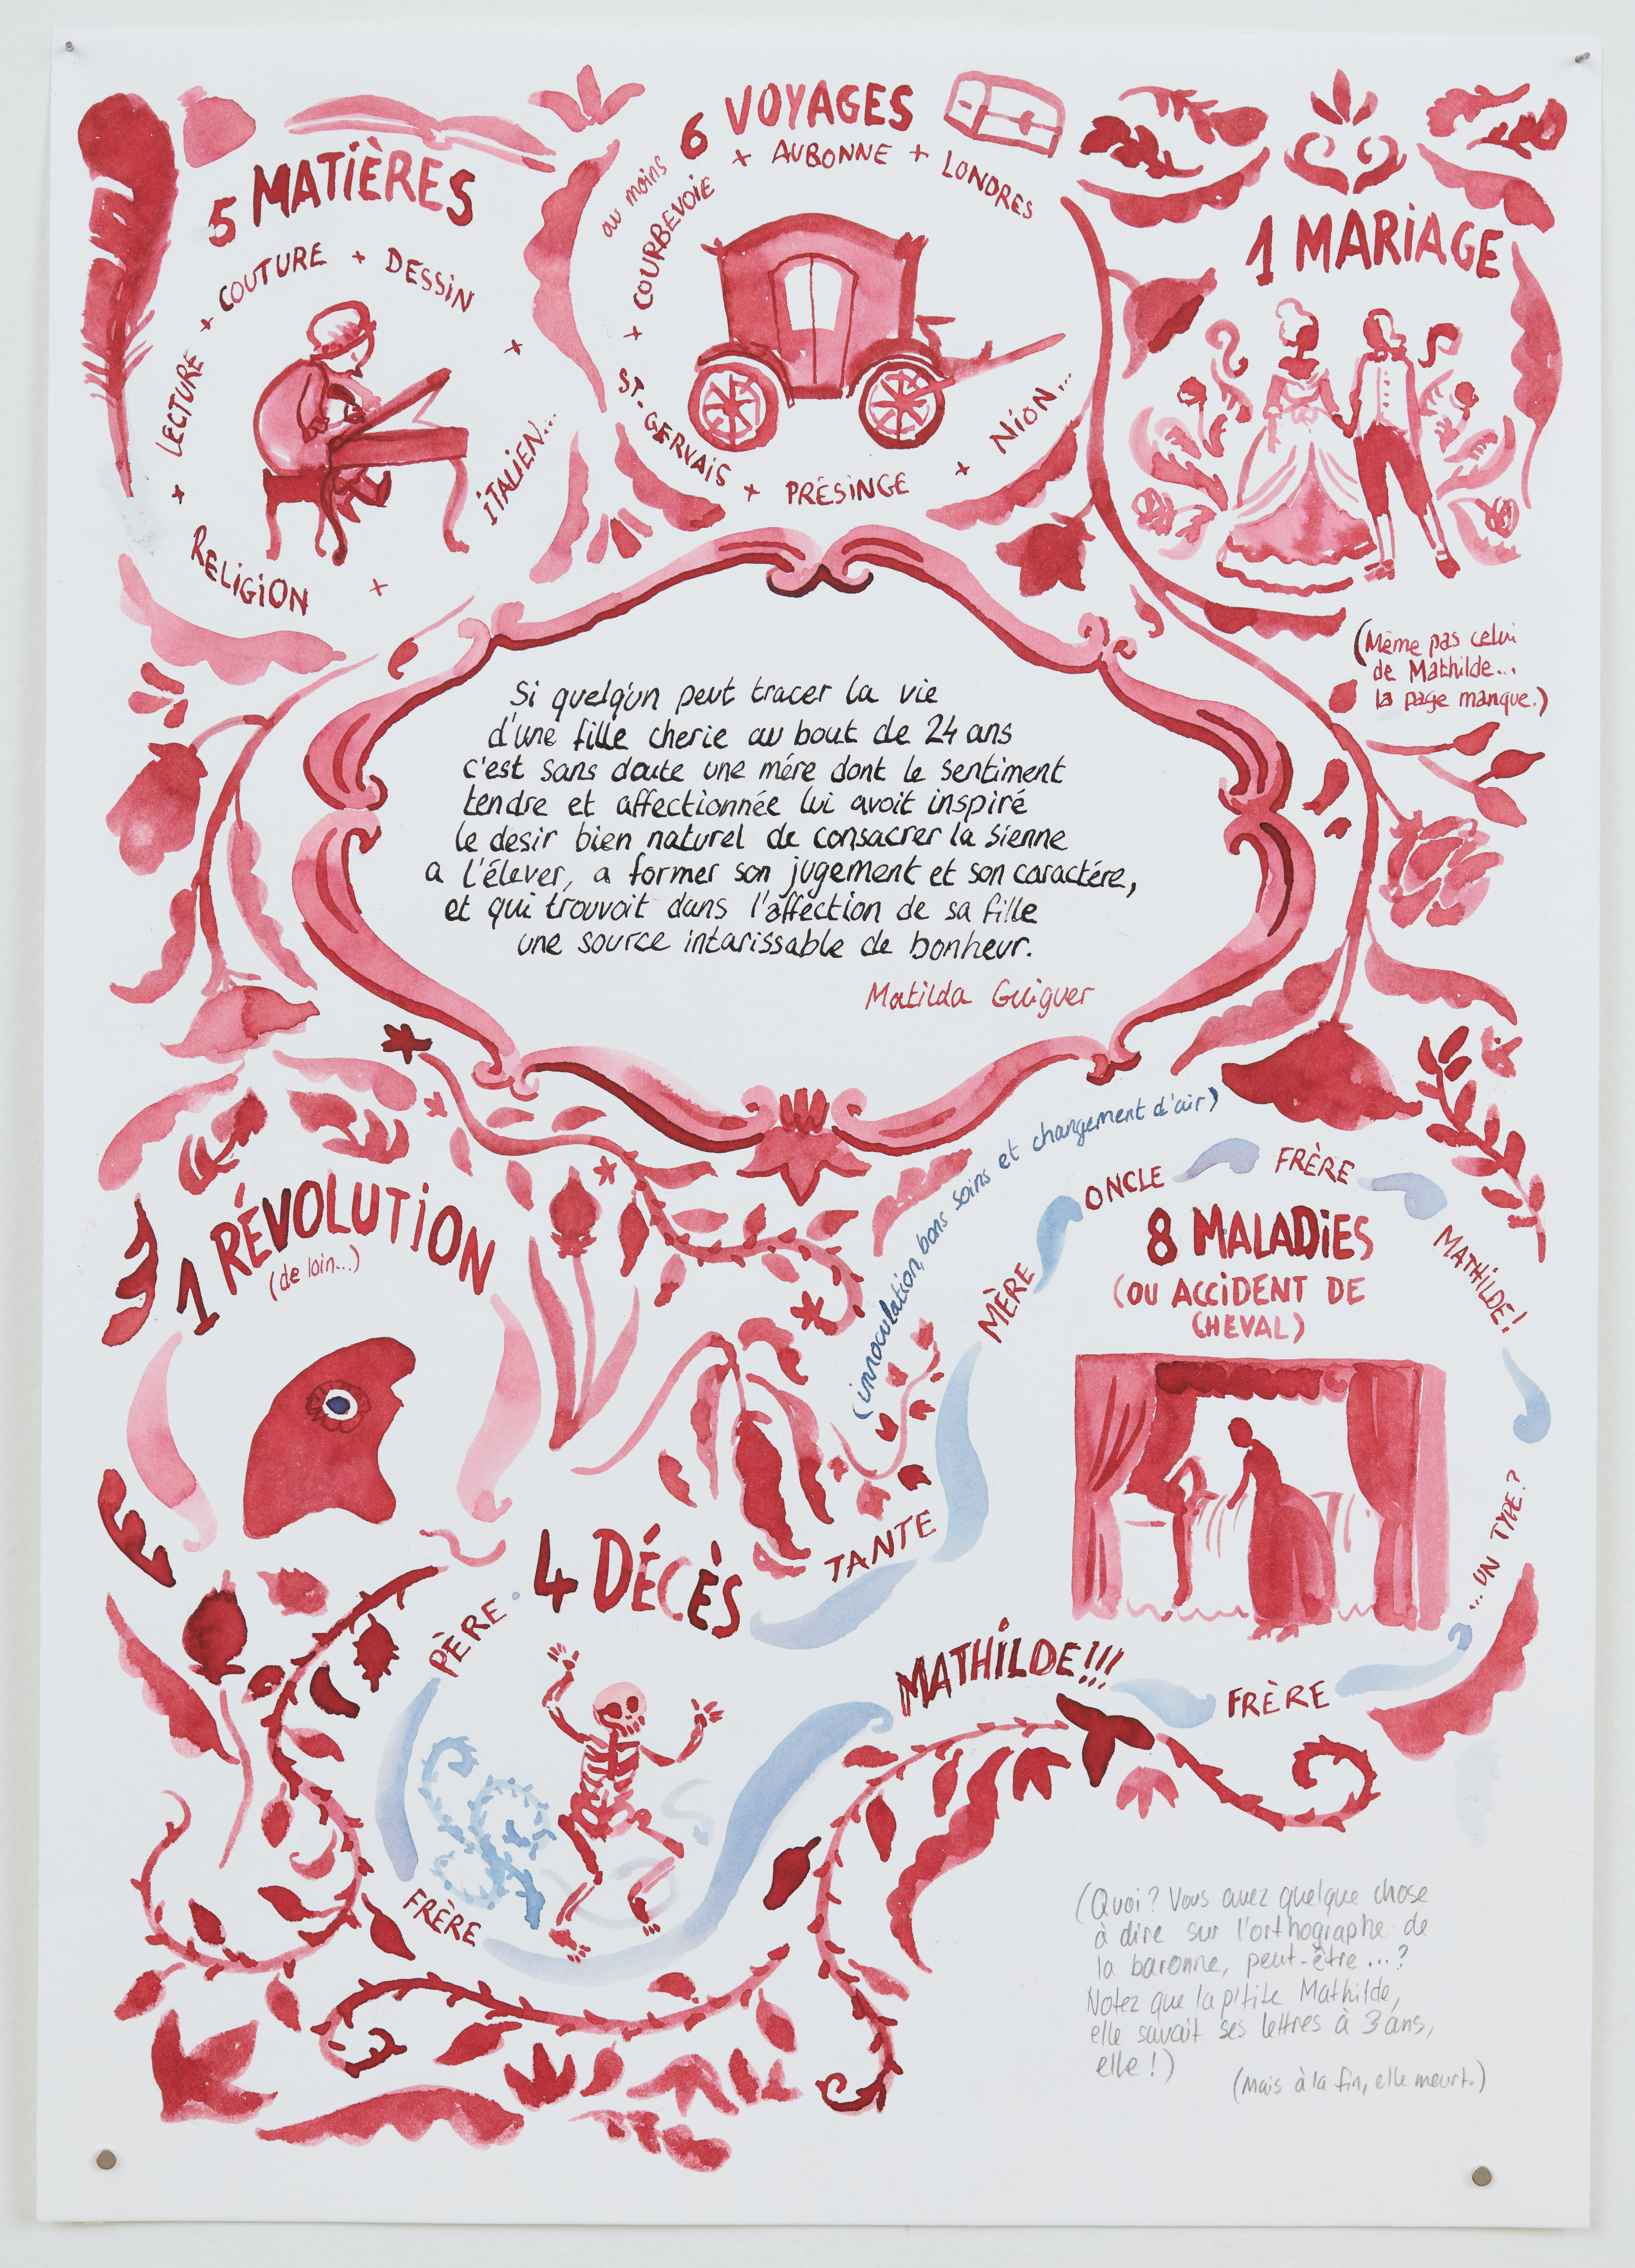 5 MATIÈRES
COUTURE + DESSIN
+ LECTURE +
+ ITALIEN...
RELIGION +
au moins 6 VOYAGES
+ AUBONNE + LONDRES
+ COURBEVOIE
ST-GERVAIS + PRÉSINGE + NION...
1 MARIAGE
(Même pas celui
de Mathilde...
la page manque.)
Si quelq'un peut tracer la vie
d'une fille cherie au bout de 24 ans
c'est sans doute une mére dont le sentiment
tendre et affectionnée lui avoit inspiré
le desir bien naturel de consacrer la sienne
a l'élever, a former son jugement et son caractére,
et qui trouvoit dans l'affection de sa fille
une source intarissable de bonheur.
Matilda Guiguer
1 RÉVOLUTION
(de loin...)
(innoculation, bons soins et changement d'air)
8 MALADIES
(OU ACCIDENT DE
CHEVAL)
MÈRE
ONCLE
FRÈRE
MATHILDE!
...UN TYPE?
FRÈRE
MATHILDE!!!
4 DÉCÈS
TANTE
PÈRE
FRÈRE
(Quoi? Vous avez quelque chose
à dire sur l'orthographe de
la baronne, peut-être...?
Notez que la p'tite Mathilde,
elle savait ses lettres à 3 ans,
elle!)
(Mais à la fin, elle meurt.)